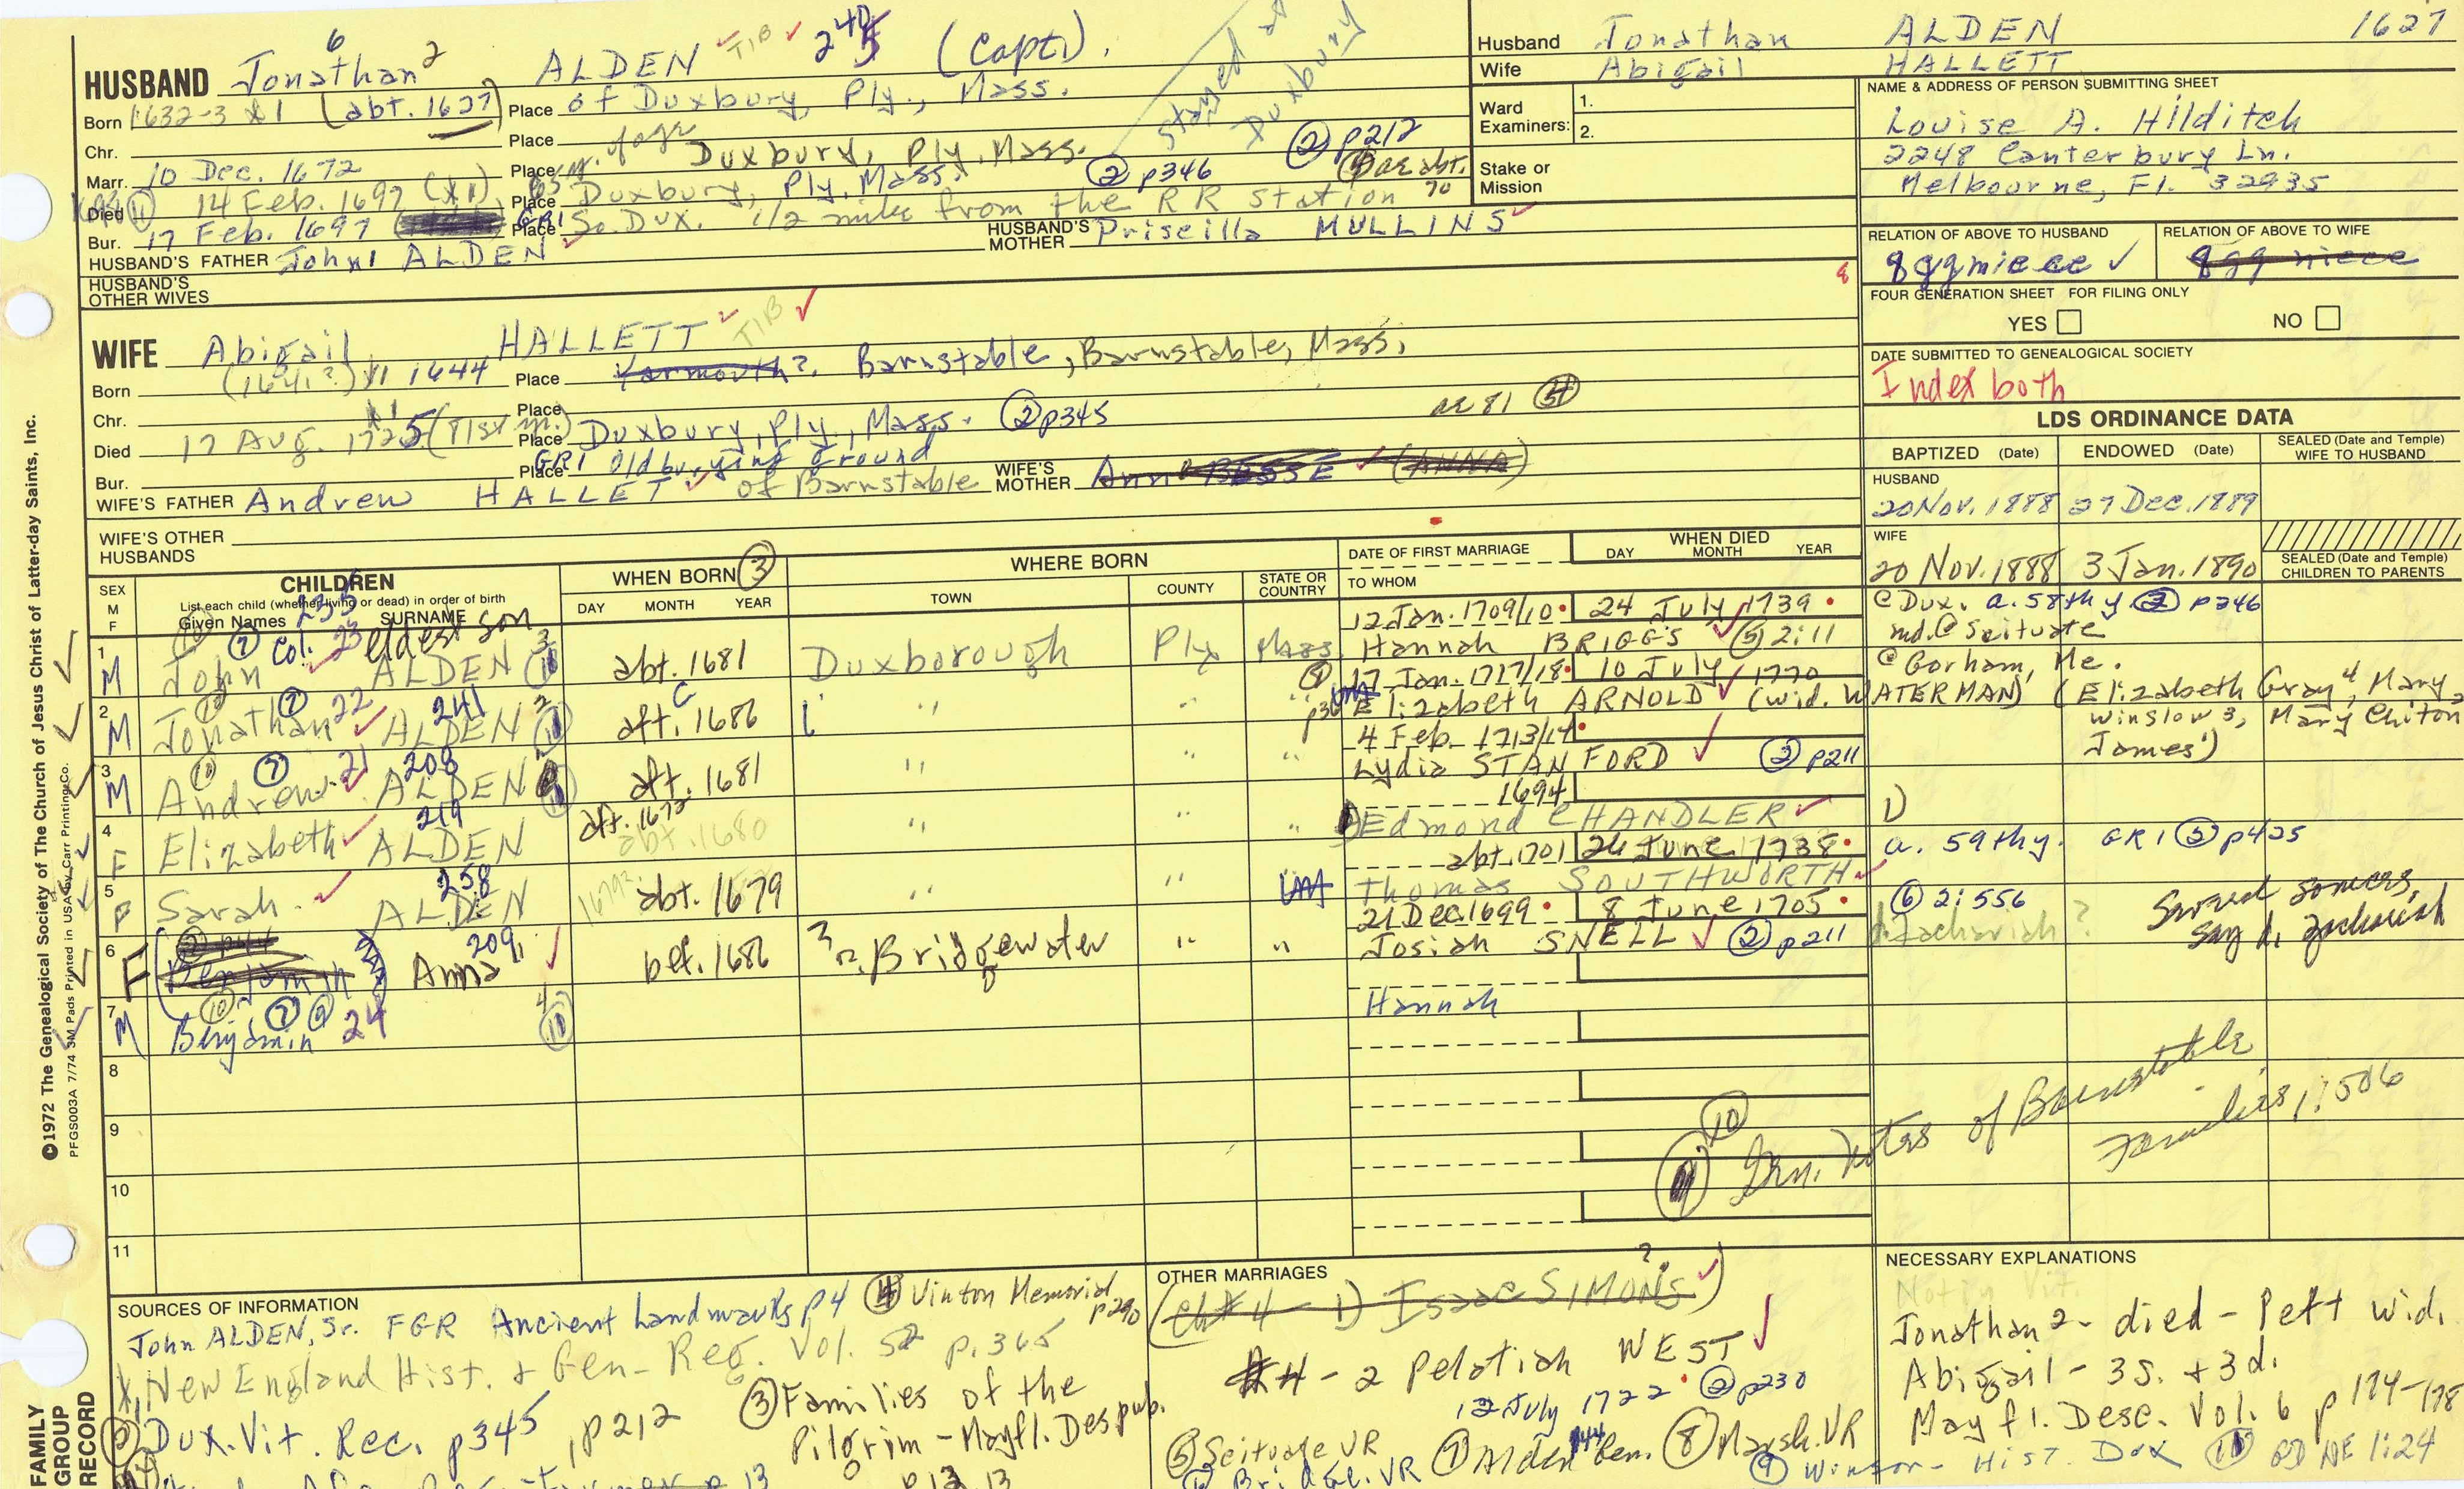 HUSBAND Jonathan 6 2 ALDEN TIB (Capt).
Born 1632-3 x1 (abt. 1627) Place of Duxbury, Ply., Mass.
stayed at Duxbury
Chr. Place
Marr. 10 Dec. 1672 Place Duxbury, Ply, Mass. ② p212
Died 14 Feb. 1697 (x1) Place Duxbury, Ply, Mass. ② p346 ae abt. 70
Bur. 17 Feb. 1697 Place GR1 So. Dux. 1/2 mile from the RR Station
HUSBAND'S FATHER John1 ALDEN HUSBAND'S MOTHER Priscilla MULLINS
HUSBAND'S OTHER WIVES
WIFE Abigail HALLETT TIB
Born (1641?) x1 1644 Place Yarmouth?. Barnstable, Barnstable, Mass.
Chr. Place
Died 17 Aug. 1725 (81st yr.) Place Duxbury, Ply., Mass. ② p345 ae 81 ④
Bur. Place GR1 Old burying Ground
WIFE'S FATHER Andrew HALLET of Barnstable WIFE'S MOTHER Anne BESSE (ANNA)
WIFE'S OTHER HUSBANDS
Husband Jonathan ALDEN 1627
Wife Abigail HALLETT
Ward Examiners: 1. 2.
Stake or Mission
NAME & ADDRESS OF PERSON SUBMITTING SHEET
Louise A. Hilditch
2248 Canterbury Ln.
Melbourne, Fl. 32935
RELATION OF ABOVE TO HUSBAND RELATION OF ABOVE TO WIFE
8ggniece 8gg niece
8
FOUR GENERATION SHEET FOR FILING ONLY
YES NO
DATE SUBMITTED TO GENEALOGICAL SOCIETY
Index both
LDS ORDINANCE DATA
BAPTIZED (Date) ENDOWED (Date) SEALED (Date and Temple) WIFE TO HUSBAND
HUSBAND
20 Nov. 1888 27 Dec. 1889
WIFE
20 Nov. 1888 3 Jan. 1890
SEALED (Date and Temple) CHILDREN TO PARENTS
SEX M F CHILDREN WHEN BORN ③ WHERE BORN DATE OF FIRST MARRIAGE WHEN DIED DAY MONTH YEAR
List each child (whether living or dead) in order of birth
Given Names SURNAME DAY MONTH YEAR TOWN COUNTY STATE OR COUNTRY TO WHOM
235
1 M ⑦ Col. 23 eldest son John ALDEN 3 abt. 1681 Duxborough Ply Mass 12 Jan. 1709/10 24 July 1739 Hannah BRIGGS ⑤ 2:11
@ Dux. a. 58th y. ② p346
md. @ Scituate
2 M ⑩ ⑦ 22 241 Jonathan ALDEN 2 aft. 1686 " " " 17 Jan. 1717/18 10 July 1770 Elizabeth ARNOLD (wid. WATERMAN)
@ Gorham, Me.
(Elizabeth Gray4, Mary Winslow3, Mary Chilton2 James1)
3 M ⑩ ⑦ 21 208 Andrew ALDEN aft. 1681 " " " 4 Feb. 1713/14 Lydia STANFORD ② p211
4 F 219 Elizabeth ALDEN aft. 1672 abt. 1680 " " " 1694 Edmond CHANDLER
1)
5 F 258 Sarah ALDEN 1679? abt. 1679 " " abt. 1701 26 June 1738 Thomas SOUTHWORTH
a. 59thy. GR1 ② p425
6 F 209 Benjamin Anna bef. 1686 ? Bridgewater " " 21 Dec. 1699 8 June 1705 Josiah SNELL ② p211
⑥ 2:556
Zachariah ?
say d. Zachariah
7 M ⑩ ⑦ ⑨ Benjamin 24 4 Hannah
8
9
10
11
⑩ Gen. Notes of Barnstable Families 1:506
SOURCES OF INFORMATION
John ALDEN, Sr. FGR Ancient Landmarks p4 ④ Vinton Memorial p290
x1 New England Hist. & Gen. Reg. Vol. 52 p. 365
② Dux. Vit. Rec. p345, p212 ③ Families of the Pilgrim - Mayfl. Des pub.
p 13
OTHER MARRIAGES
(Ch #4 - 1) Isaac SIMONS ?)
#4 - 2 Pelatiah WEST
12 July 1722 ② p230
⑤ Scituate VR ⑦ Alden Gen. ⑧ Marsh. VR
⑥ Bridge. VR ⑨ Winsor - Hist. Dux
NECESSARY EXPLANATIONS
Not in Vit.
Jonathan2 - died - left wid. Abigail - 3s. + 3d.
Mayfl. Desc. Vol. 6 p 174-178
⑪ NE 1:24
©1972 The Genealogical Society of The Church of Jesus Christ of Latter-day Saints, Inc.
PFGS003A 7/74 3M Pads Printed in USA by Carr Printing Co.
FAMILY GROUP RECORD